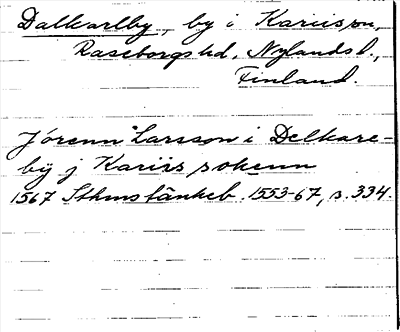 Dalkarlby, by i Kariis sn,
Raseborgs hd, Nylands l.,
Finland.
Jörenn Larsson i Delkare-
bÿ j Kariis sokenn
1567 Sthms tänkeb. 1553-67, s. 334.